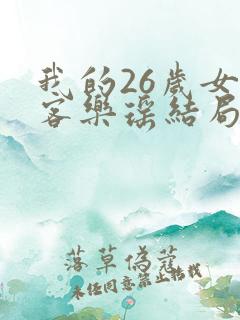 我的26岁女
客乐瑶结局
落草伪蔻
未经同意禁止转载